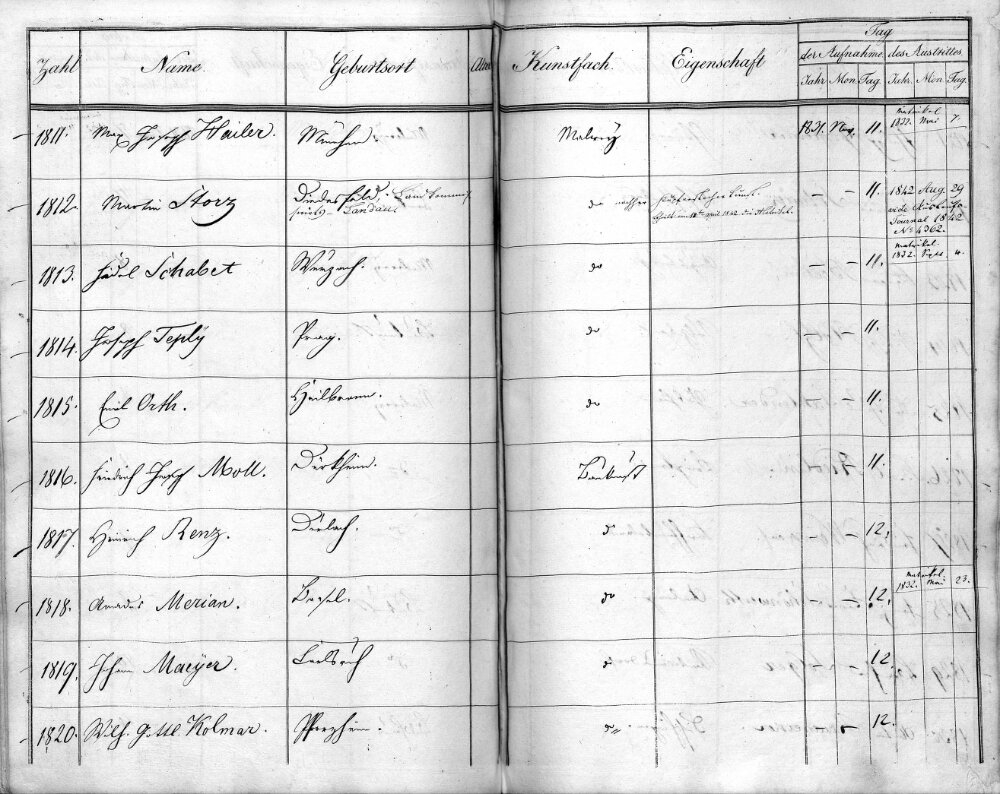 Tag
Zahl Name. Geburtsort Kunstfach. Eigenschaft der Aufnahme. des Austrittes.
Jahr Mon. Tag. Jahr. Mon Tag.
1811. Max Joseph Hailer. München. Malerey 1831. Nov. 11. Matrikel 1832. Mai 7.
1812. Martin Storz Diedesfeld, Landau. do nachher 11. 1842 Aug. 29
vide Journal 1842
No 4362.
1813. Fidel Schabet Wurzach. do 11. Matrikel. 1832. 4.
1814. Joseph Teply Prag. do 11.
1815. Emil Orth. Heilbronn. do 11.
1816. Friedrich Joseph Moll. Dürkheim. Baukunst 11.
1817. Heinrich Renz. Durlach. do 12.
1818. Amadeus Merian. Basel. do 12. Matrikel. 1832. Mai 23.
1819. Johann Maeyer. Carlsruh do 12.
1820. Wilh. Gottl. Kolmar. Pforzheim. do 12.